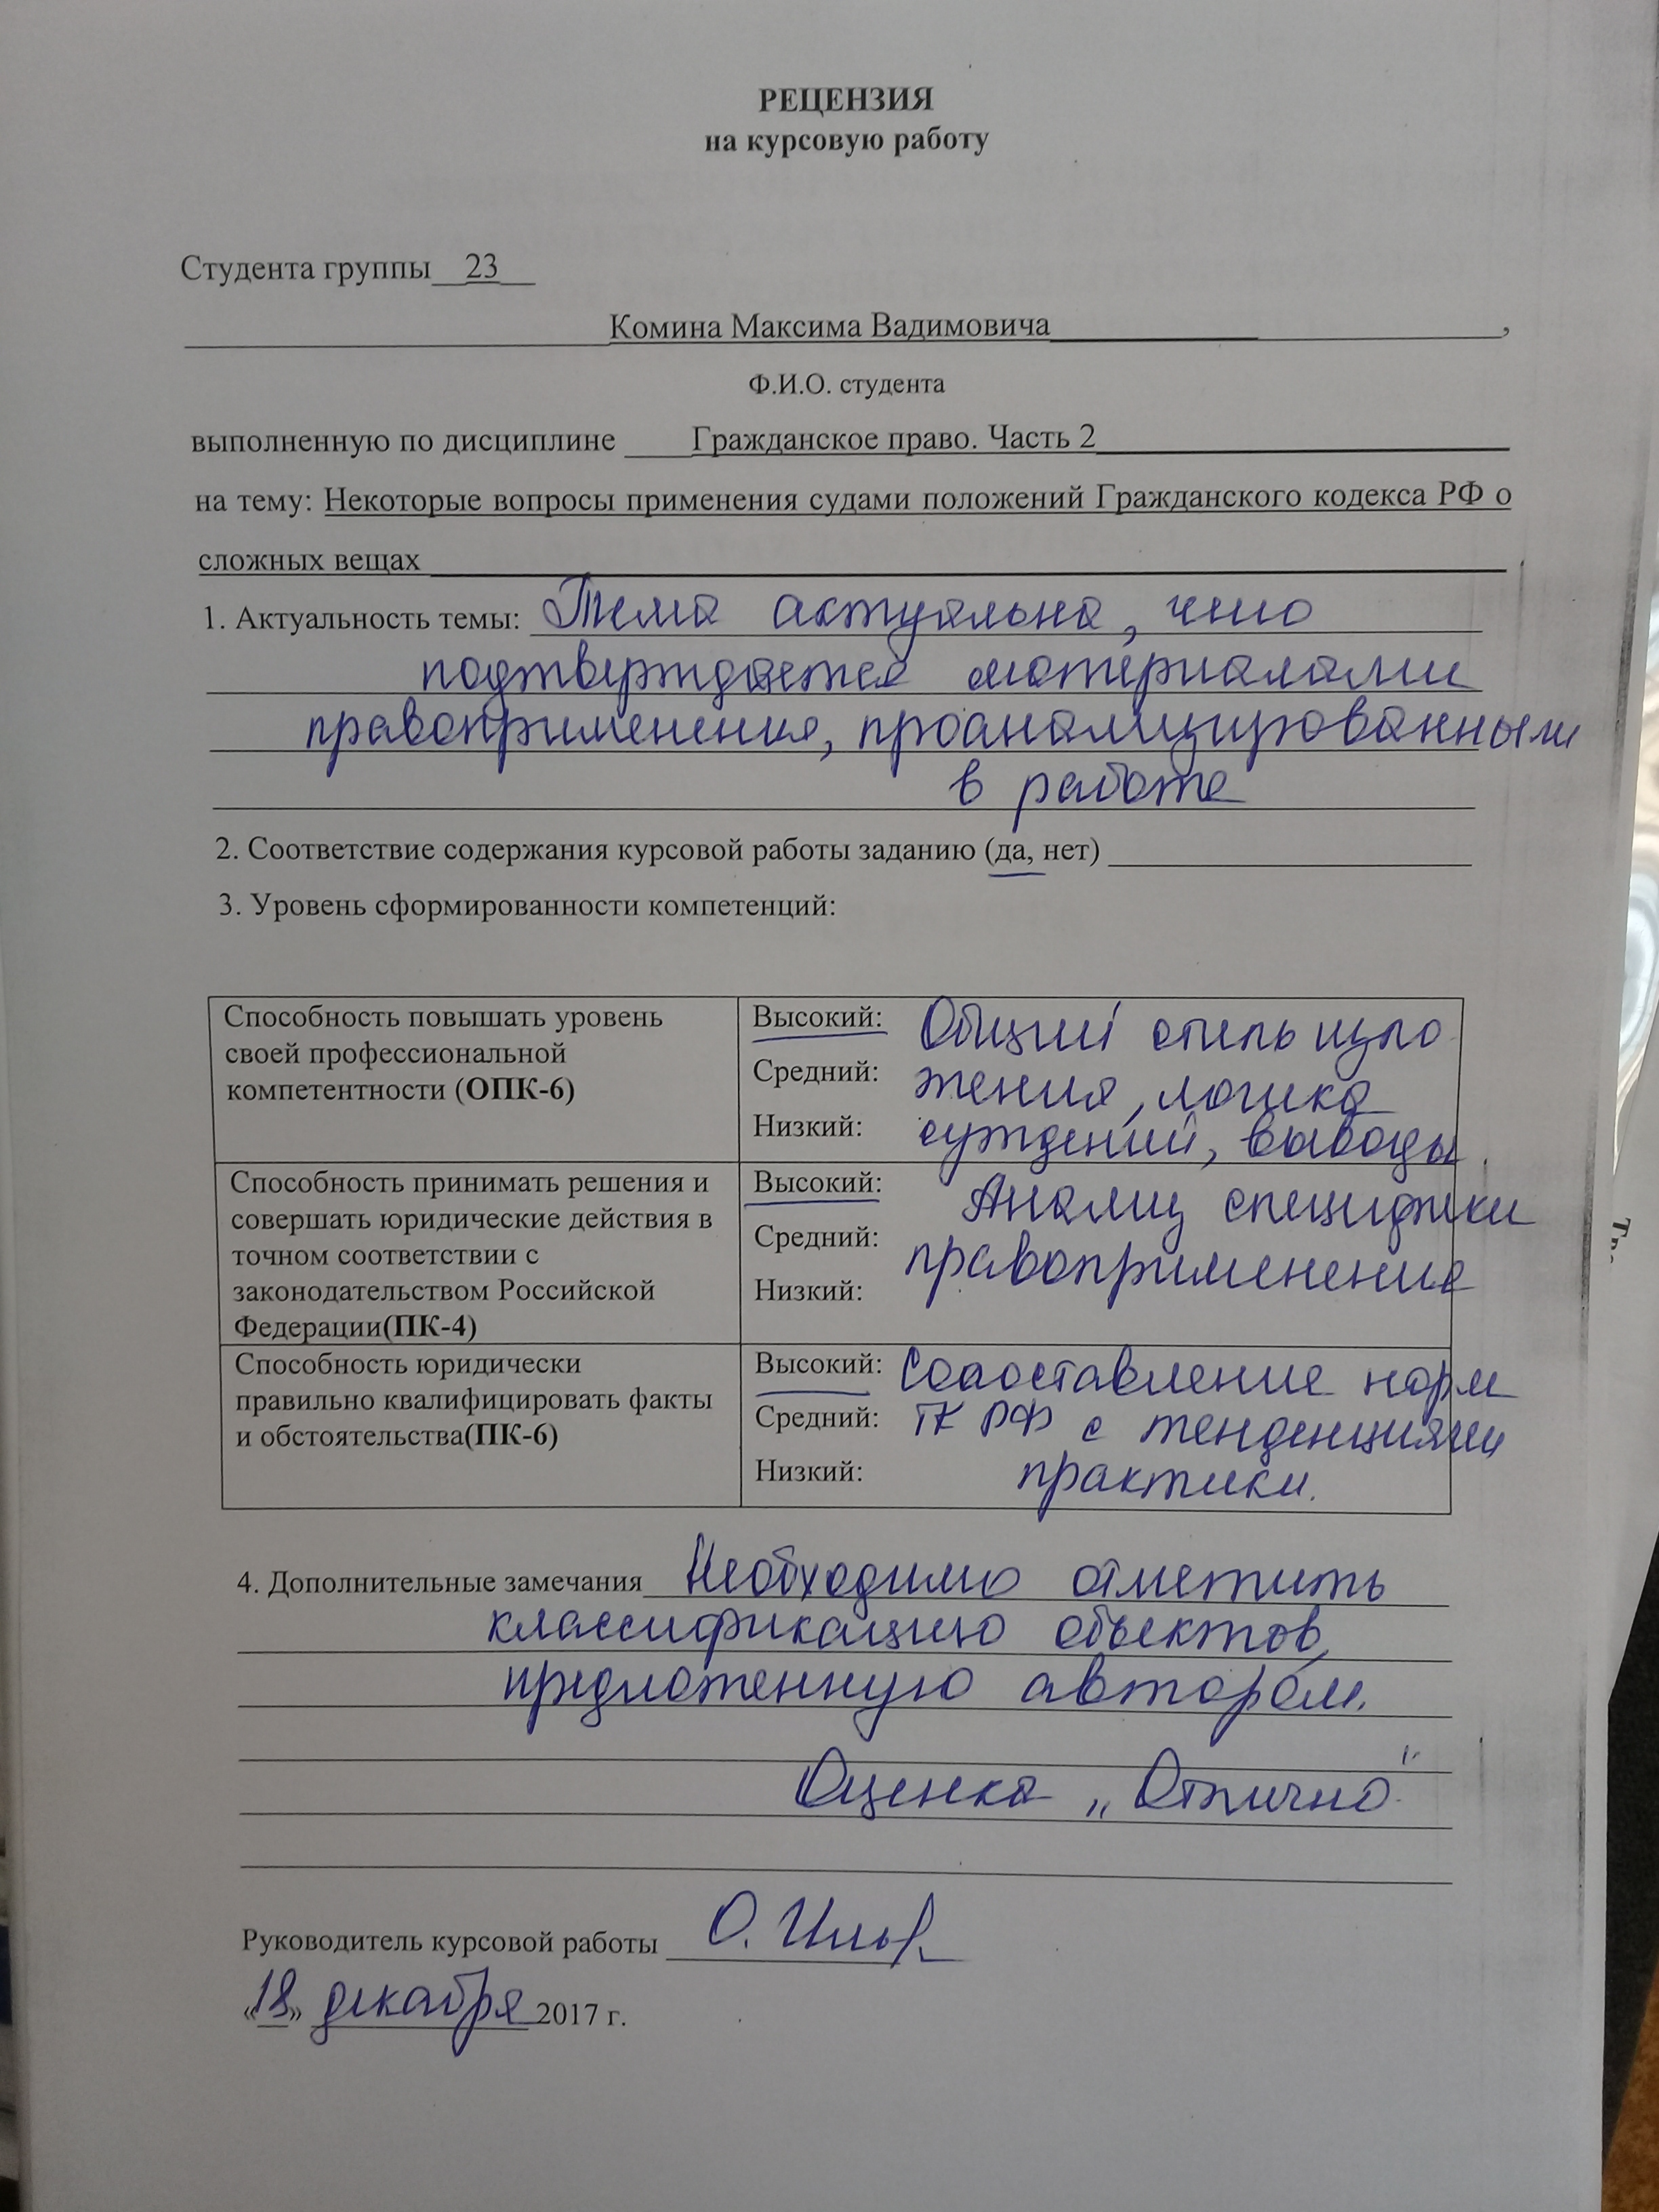 РЕЦЕНЗИЯ
на курсовую работу
Студента группы 23
Комина Максима Вадимовича,
Ф.И.О. студента
выполненную по дисциплине Гражданское право. Часть 2
на тему: Некоторые вопросы применения судами положений Гражданского кодекса РФ о
сложных вещах
1. Актуальность темы: Тема актуальна, что
подтверждается материалами
правоприменения, проанализированными
в работе
2. Соответствие содержания курсовой работы заданию (да, нет)
3. Уровень сформированности компетенций:
Способность повышать уровень
своей профессиональной
компетентности (ОПК-6)
Высокий: Общий стиль изло
Средний: жения, логика
Низкий: суждений, выводы.
Способность принимать решения и
совершать юридические действия в
точном соответствии с
законодательством Российской
Федерации(ПК-4)
Высокий: Анализ специфики
Средний: правоприменения
Низкий:
Способность юридически
правильно квалифицировать факты
и обстоятельства(ПК-6)
Высокий: Сопоставление норм
Средний: ГК РФ с тенденциями
Низкий: практики.
4. Дополнительные замечания Необходимо отметить
классификацию объектов,
предложенную автором.
Оценка „Отлично"
Руководитель курсовой работы О.
«18» декабря 2017 г.